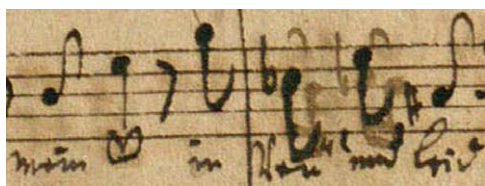 mein ♡ in Reu und Leid